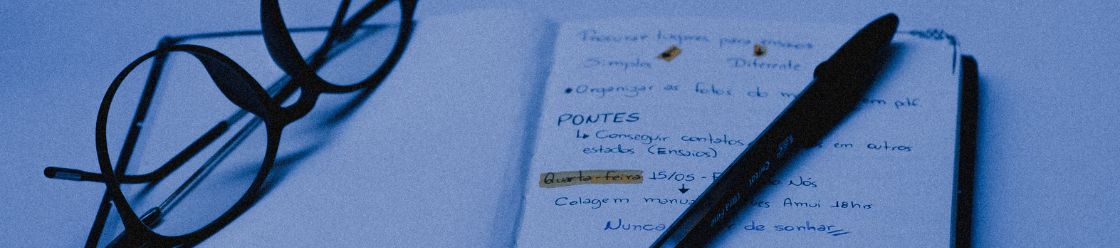 Procurar lugares para ensaios
Simples Diferente
• Organizar as fotos do em pdf.
PONTES
↳ Conseguir contatos em outros
estados (Ensaios)
Quarta-feira 15/05 - Nós
Colagem Amui 18hs
Nunca de sonhar